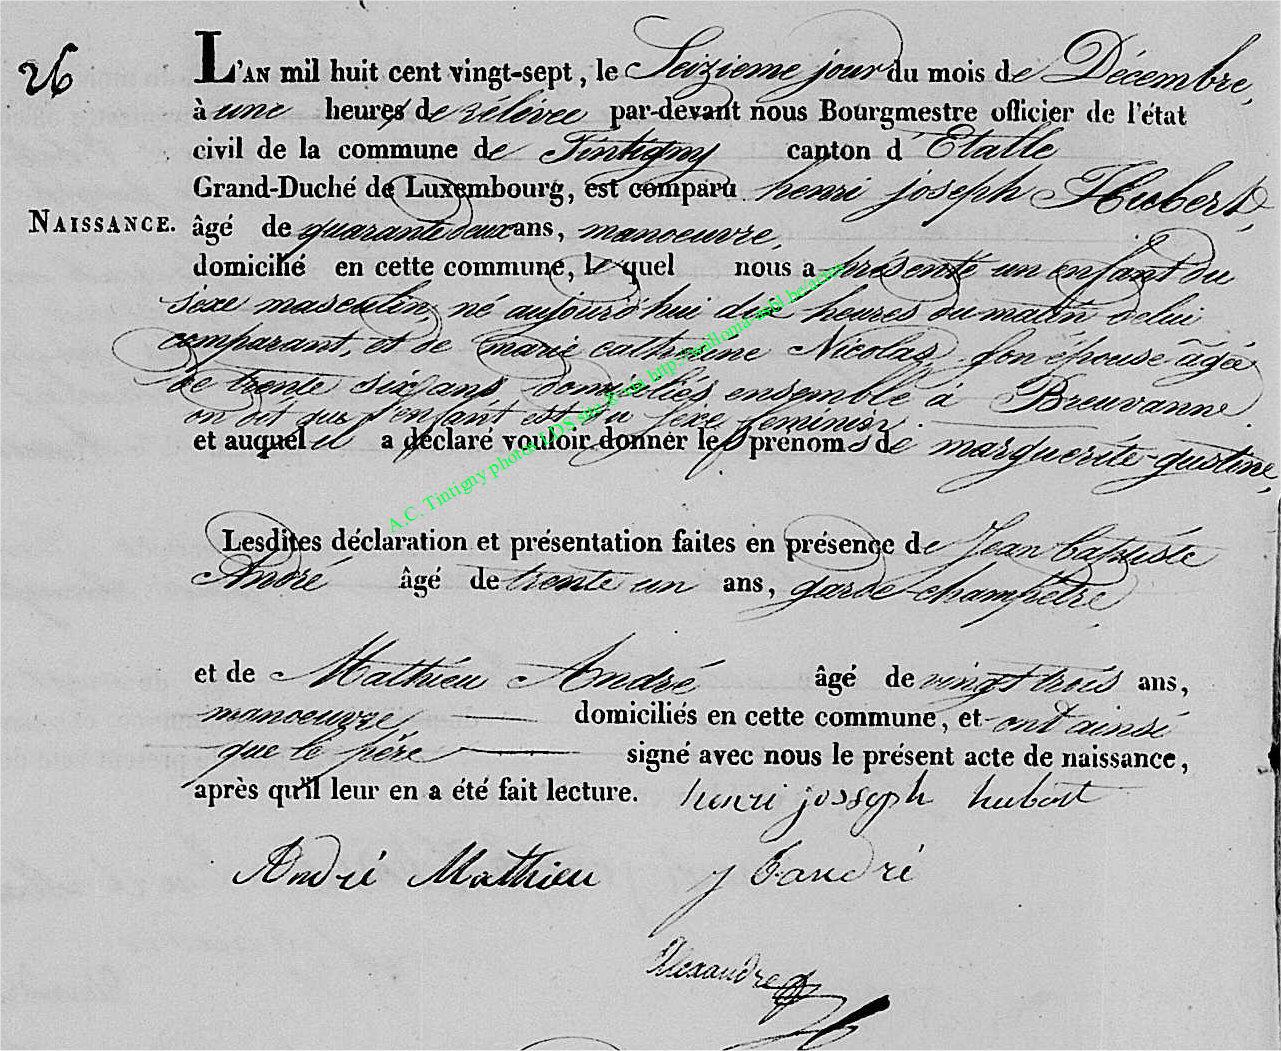 26
L'AN mil huit cent vingt-sept, le Seizieme jour du mois de Décembre,
à une heures de rélévée par-devant nous Bourgmestre officier de l'état
civil de la commune de Tintigny canton d'Etalle
Grand-Duché de Luxembourg, est comparu henri joseph Hubert,
NAISSANCE. âgé de quarante deux ans, manoeuvre,
domicilié en cette commune, lequel nous a présenté un enfant du
sexe masculin né aujourd'hui dix heures du matin de lui
comparant, et de marie catherine Nicolas son épouse âgée
de trente six ans, domiciliés ensemble à Breuvanne
on dit que l'enfant est du sexe feminin.
et auquel il a déclaré vouloir donner les prénoms de marguerite-justine,
Lesdites déclaration et présentation faites en présence de Jean batiste
André âgé de trente un ans, garde-champêtre
et de Mathieu André âgé de vingt trois ans,
manoeuvre domiciliés en cette commune, et ont ainsi
que le père signé avec nous le présent acte de naissance,
après qu'il leur en a été fait lecture. henri josseph hubert
André Mathieu j b andré
Alexandre
A.C. Tintigny photos LDS site & via http://wallonia-asbl.be/actes